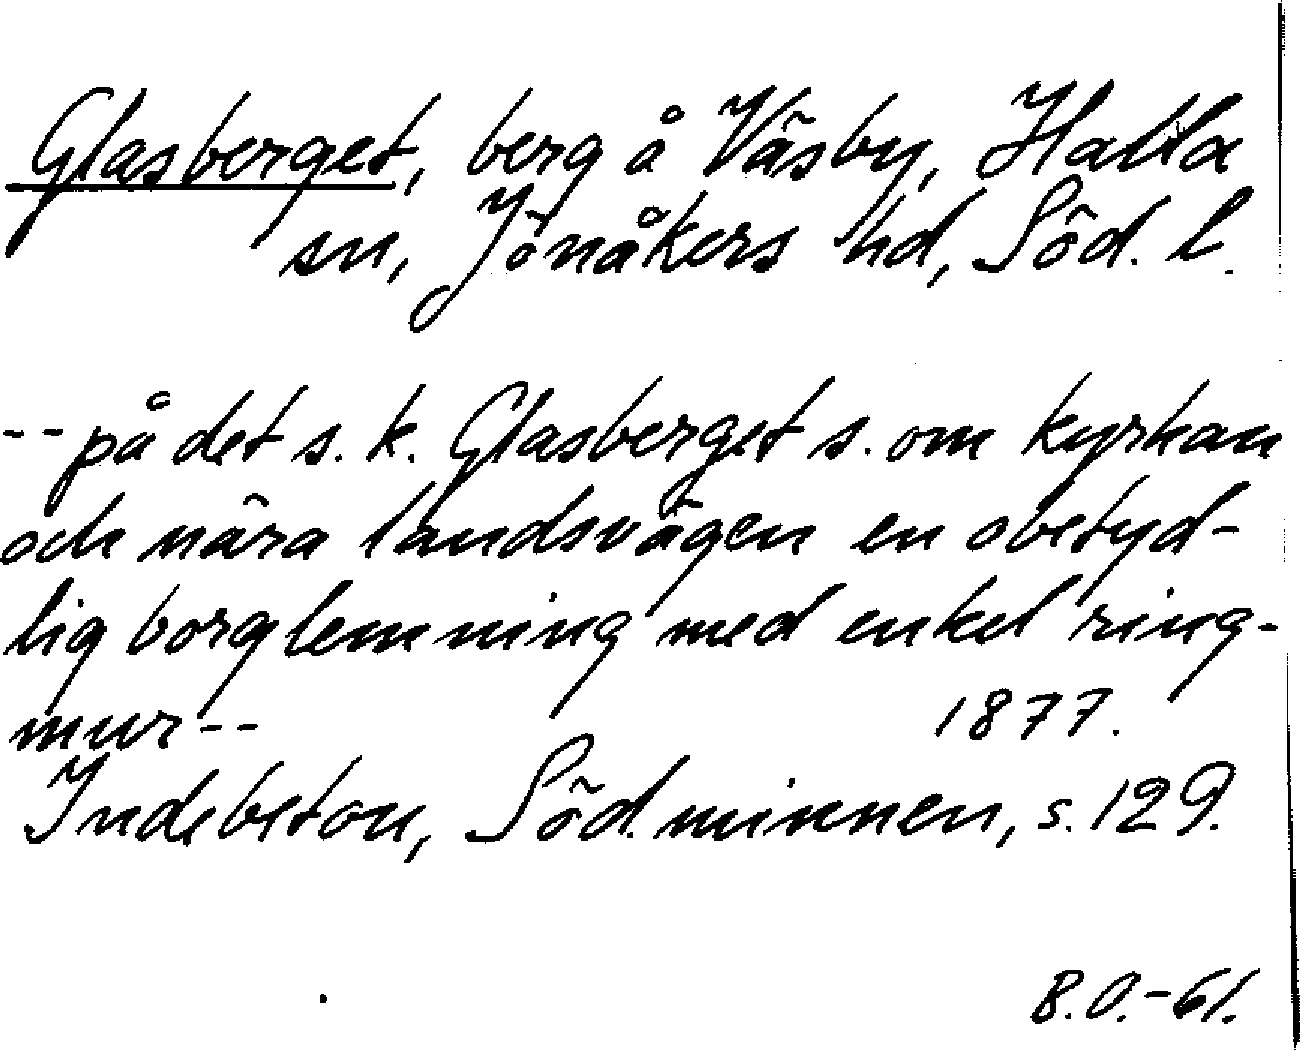 Glasberget, berg å Väsby, Halla
sn, Jönåkers hd, Söd. l.
-- på det s. k. Glasberget s. om kyrkan
och nära landsvägen en obetyd-
lig borglemning med enkel ring-
mur -- 1877.
Indebetou, Söd. minnen, s. 129.
B.O.-61.